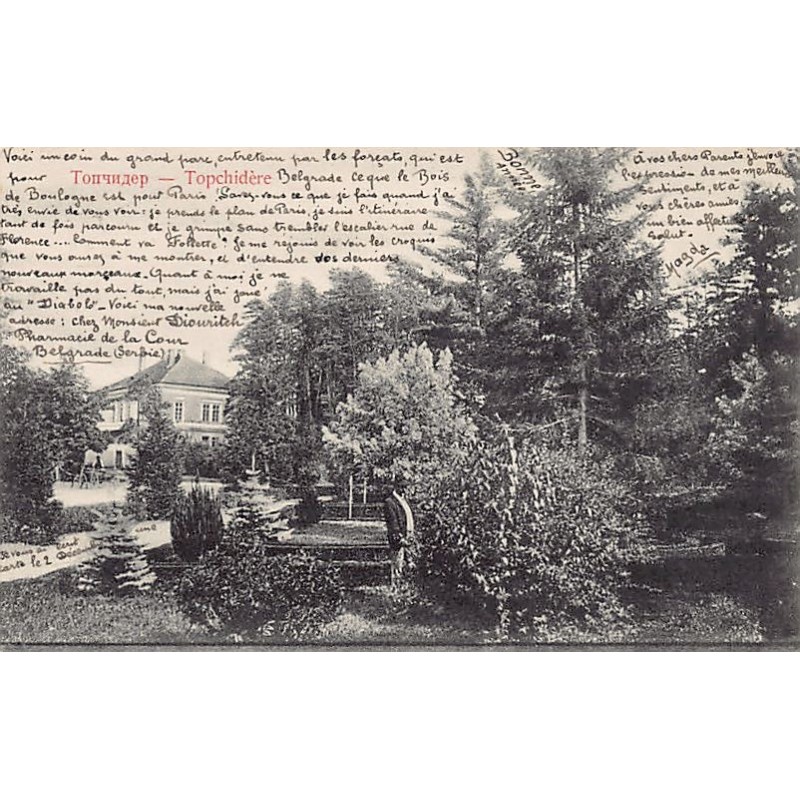 Voici un coin du grand parc, entretenu par les forçats, qui est
pour Топчидер — Topchidère Belgrade ce que le Bois
de Boulogne est pour Paris! Savez-vous ce que je fais quand j'ai
très envie de vous voir: je prends le plan de Paris, je suis l'itinéraire
tant de fois parcouru et je grimpe sans trembler l'escalier rue de
Florence... Comment va Follette? Je me rejouis de voir les croquis
que vous aurez à me montrer, et d'entendre vos derniers
nouveaux morceaux. Quant à moi je ne
travaille pas du tout, mais j'ai joué
au "Diabolo". Voici ma nouvelle
adresse: chez Monsieur Diouritch
Pharmacie de la Cour
Belgrade (Serbie)
Bonne
Année
À vos chers Parents j'envoie
l'expression de mes meilleurs
sentiments, et à
vous chères amies
un bien affect
salut.
Magda
Je vous ai
carte le 2 Décem